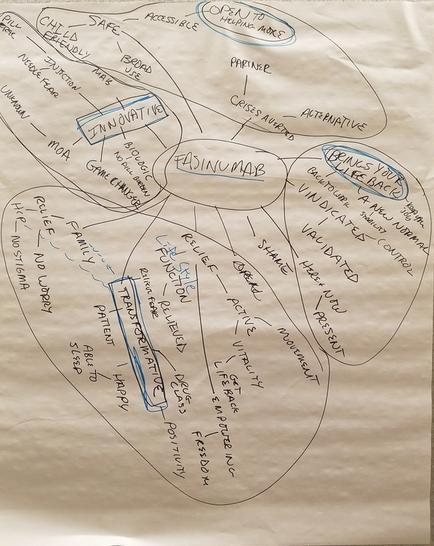 PILL
FREE
CHILD
FRIENDLY
SAFE
ACCESSIBLE
BROAD
USE
OPEN TO
HELPING MORE
PARTNER
CRISES AVERTED
ALTERNATIVE
INJECTION
NEEDLE FEAR
MAB
UNKNOWN
MOA
INNOVATIVE
BIOLOGIC
GAME CHANGER
FASINUMAB
BRINGS YOUR
LIFE BACK
BACK TO LIFE
A NEW NORMAL
STABILITY
CONTROL
VINDICATED
VALIDATED
HERE + NOW
PRESENT
SHAME
RELIEF
HIP
NO STIGMA
NO WORRY
FAMILY
TRANSFORMATIVE
PATIENT
ABLE TO
SLEEP
HAPPY
Life Style
FUNCTION
RELIEVED
DRUG
CLASS
POSITIVITY
RELIEF
ACTIVE
MOVEMENT
VITALITY
GET
LIFE BACK
EMPOWERING
FREEDOM